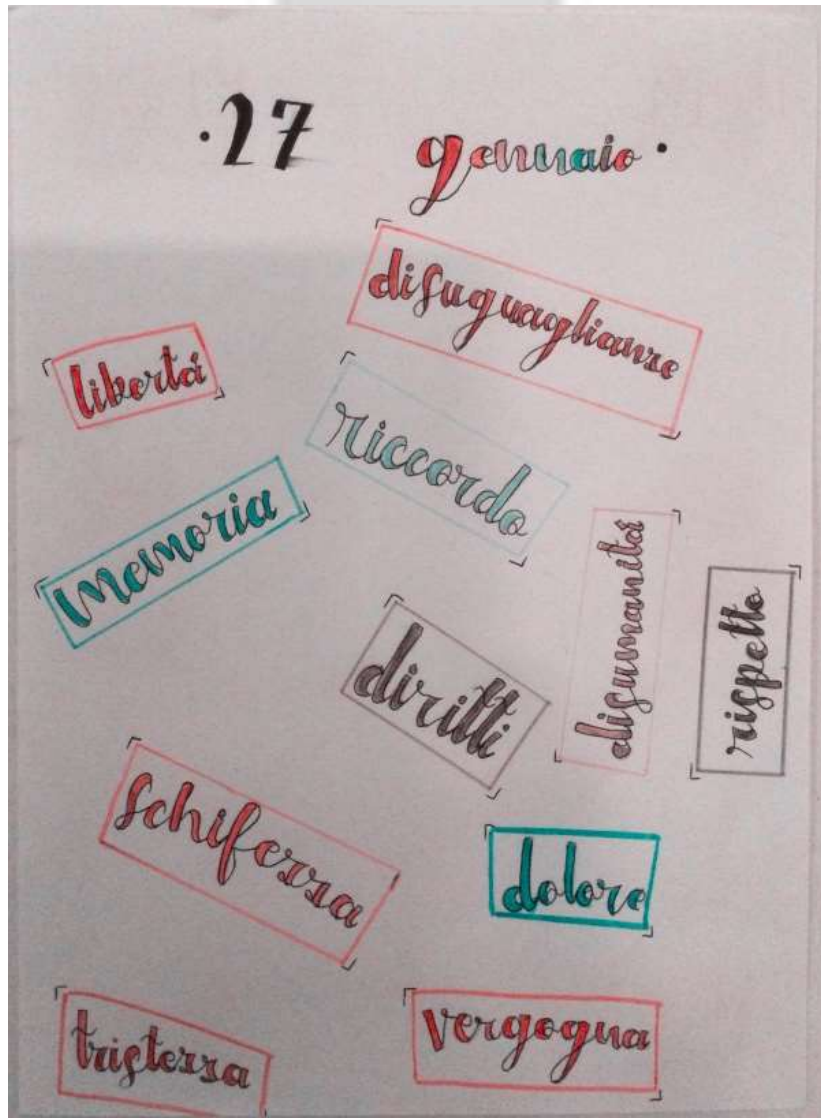 ·27 gennaio·
disuguaglianze
libertá
riccordo
Memoria
disumanitá
rispetto
diritti
schifezza
dolore
tristezza
vergogna